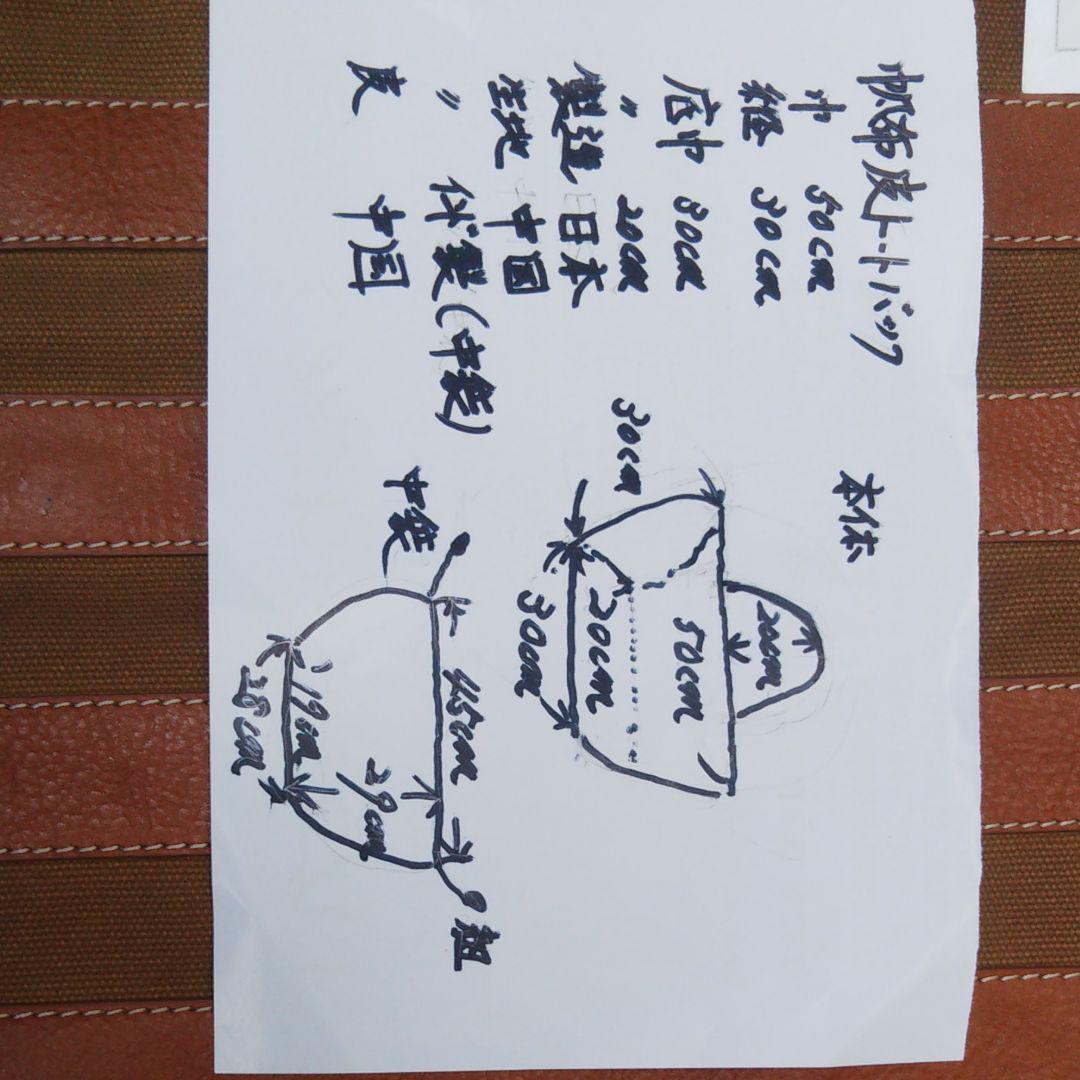 帆布皮トートバック
巾 50cm
縦 30cm
底巾 30cm
〃 20cm
製造 日本
生地 中国
〃 代製(中袋)
皮 中国
本体
200m
50cm
30cm
20cm
30cm
中袋
45cm
29cm
19cm
28cm
紐